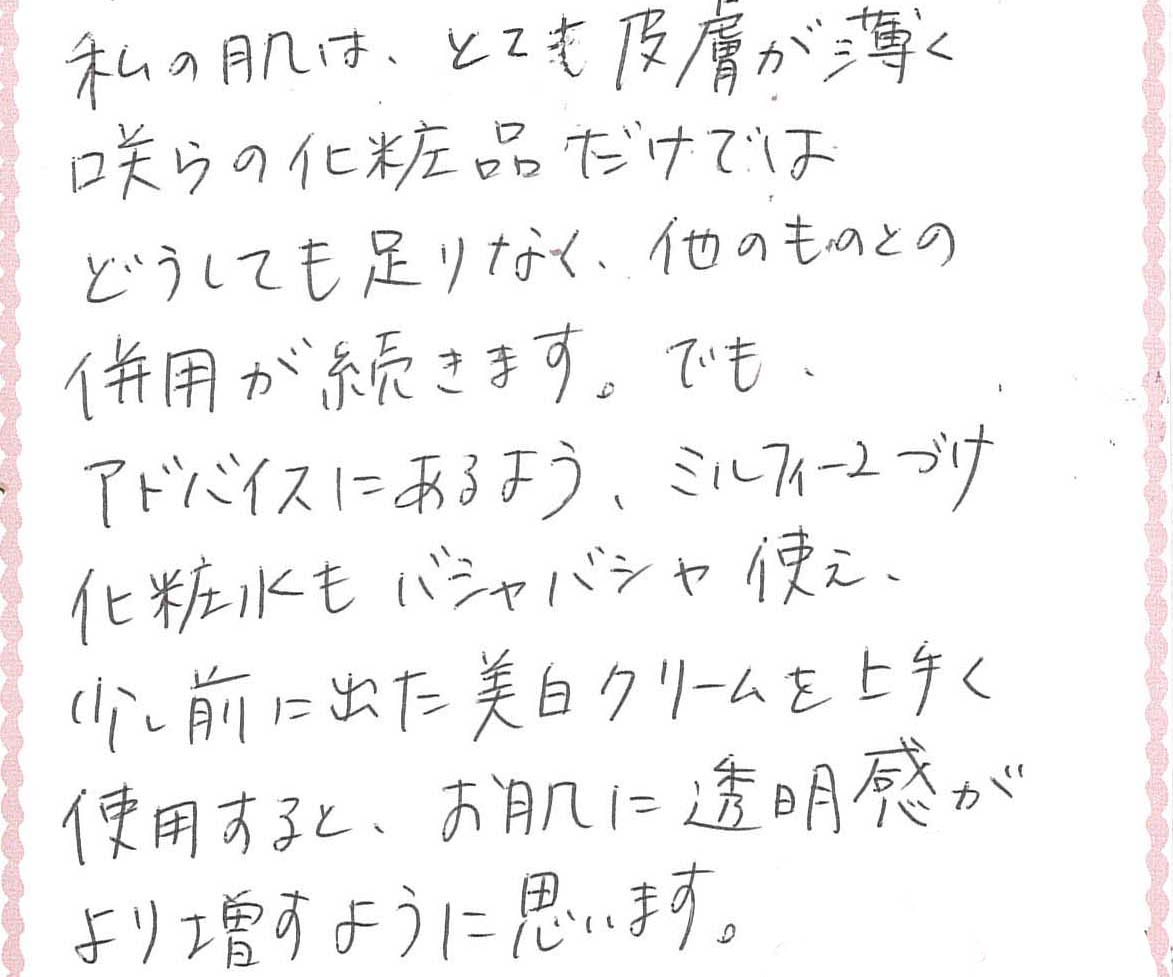 私の肌は、とても皮膚が薄く
咲らの化粧品だけでは
どうしても足りなく、他のものとの
併用が続きます。でも、
アドバイスにあるよう、ミルフィーユづけ
化粧水もバシャバシャ使え、
少し前に出た美白クリームを上手く
使用すると、お肌に透明感が
より増すように思います。